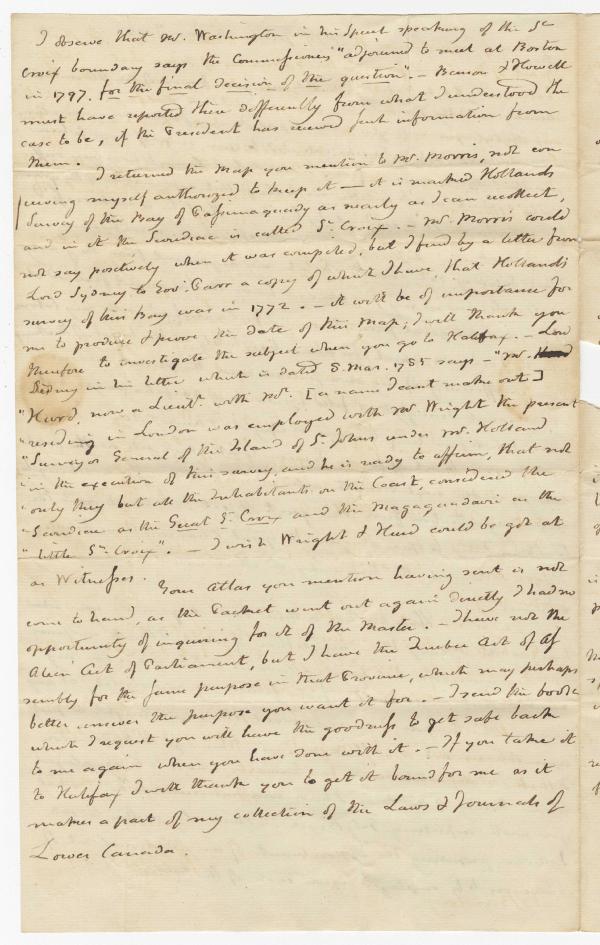 I observe that Mr. Washington in his Speech speaking of the St
Croix boundary says the Commissioners "adjourned to meet at Boston
in 1797. for the final decision of the question". — Benson & Howell
must have reported there differently from what I understood the
case to be, if the President has received such information from
them.
I returned the Map you mention to Mr. Morris, not con
ceiving myself authorized to keep it — it is marked Hollands
Survey of the Bay of Passamaquody as nearly as I can recollect,
and in it the Scoudiac is called St Croix. — Mr. Morris could
not say positively when it was compiled, but I find by a letter from
Lord Sydney to Govr. Parr a copy of which I have, that Holland's
survey of this Bay was in 1772. — It will be of importance for
me to produce & prove the date of this Map; I will thank you
therefore to investigate the subject when you go to Halifax. — Lord
Sidney in his letter which is dated 8. Mar. 1785 says — "Mr.
"Hurd, now a Lieut. with Mr. [a name I cant make out]
"residing in London was employed with Mr Wright the present
"Surveyor General of the Island of St. Johns under Mr. Holland
"in the execution of this survey, and he is ready to affirm, that not
"only they but all the Inhabitants on the Coast, considered the
"Scoudiac as the Great St. Croix and the Magaguadavic as the
"little St. Croix". — I wish Wright & Hurd could be got at
as Witnesses.
Your Atlas you mention having sent is not
come to hand, as the Packet went out again directly I had no
opportunity of inquiring for it of the Master. — I have not the
Alien Act of Parliament, but I have the Quebec Act of As
sembly for the same purpose in that Province, which may perhaps
better answer the purpose you want it for. — I send the book
which I request you will have the goodness to get safe back
to me again when you have done with it. — If you take it
to Halifax I will thank you to get it bound for me as it
makes a part of my collection of the Laws & Journals of
Lower Canada.